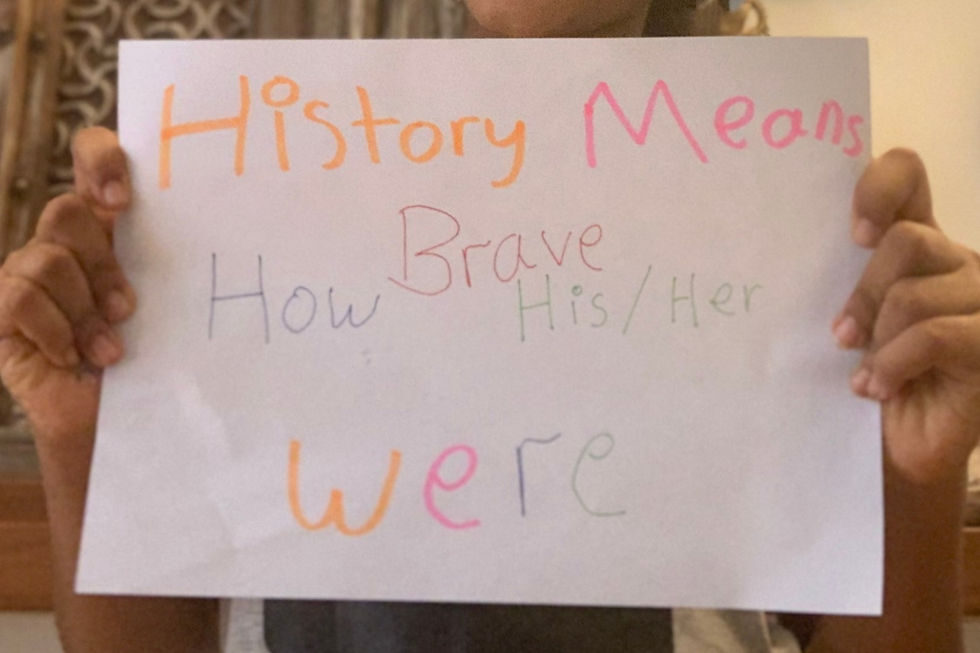 History Means
How Brave His/Her
were